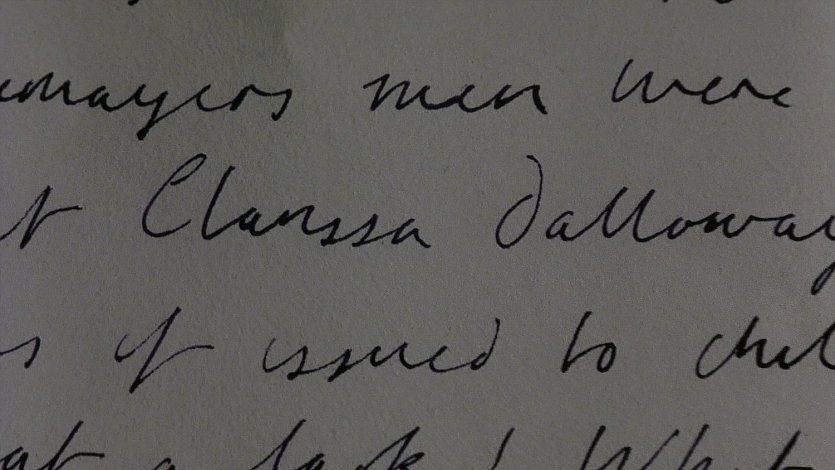 umayers men were
t Clarissa Dalloway
s if issued to chil
at a lark! What